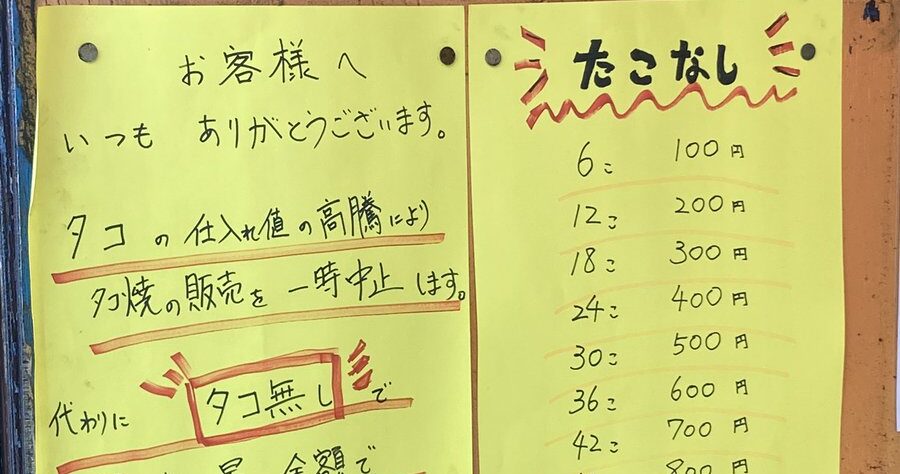 お客様へ
いつも ありがとうございます。
タコの仕入れ値の高騰により
タコ焼の販売を一時中止します。
代わりに タコ無しで
金額で
たこなし
6こ 100円
12こ 200円
18こ 300円
24こ 400円
30こ 500円
36こ 600円
42こ 700円
800円